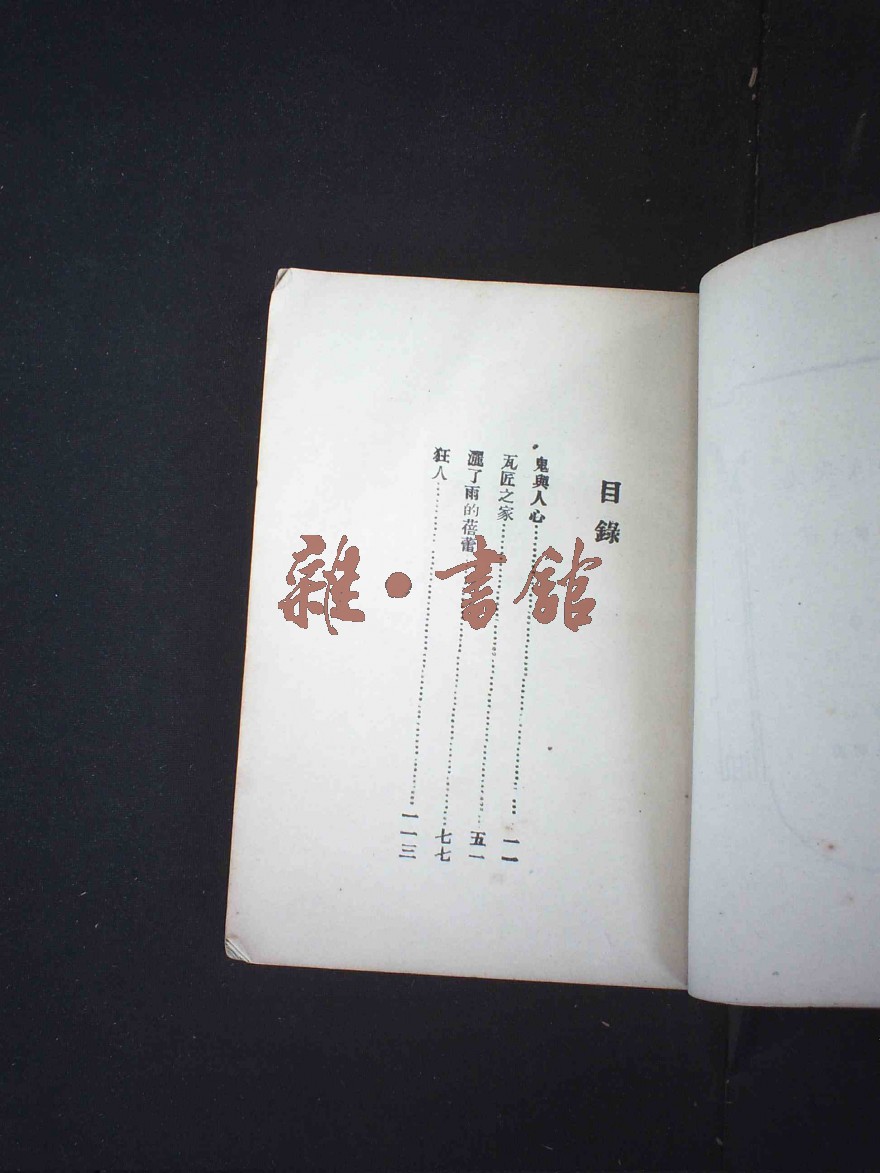 目錄
鬼與人心 一一
瓦匠之家 五一
灑了雨的蓓蕾 七七
狂人 一一三
雜·書館